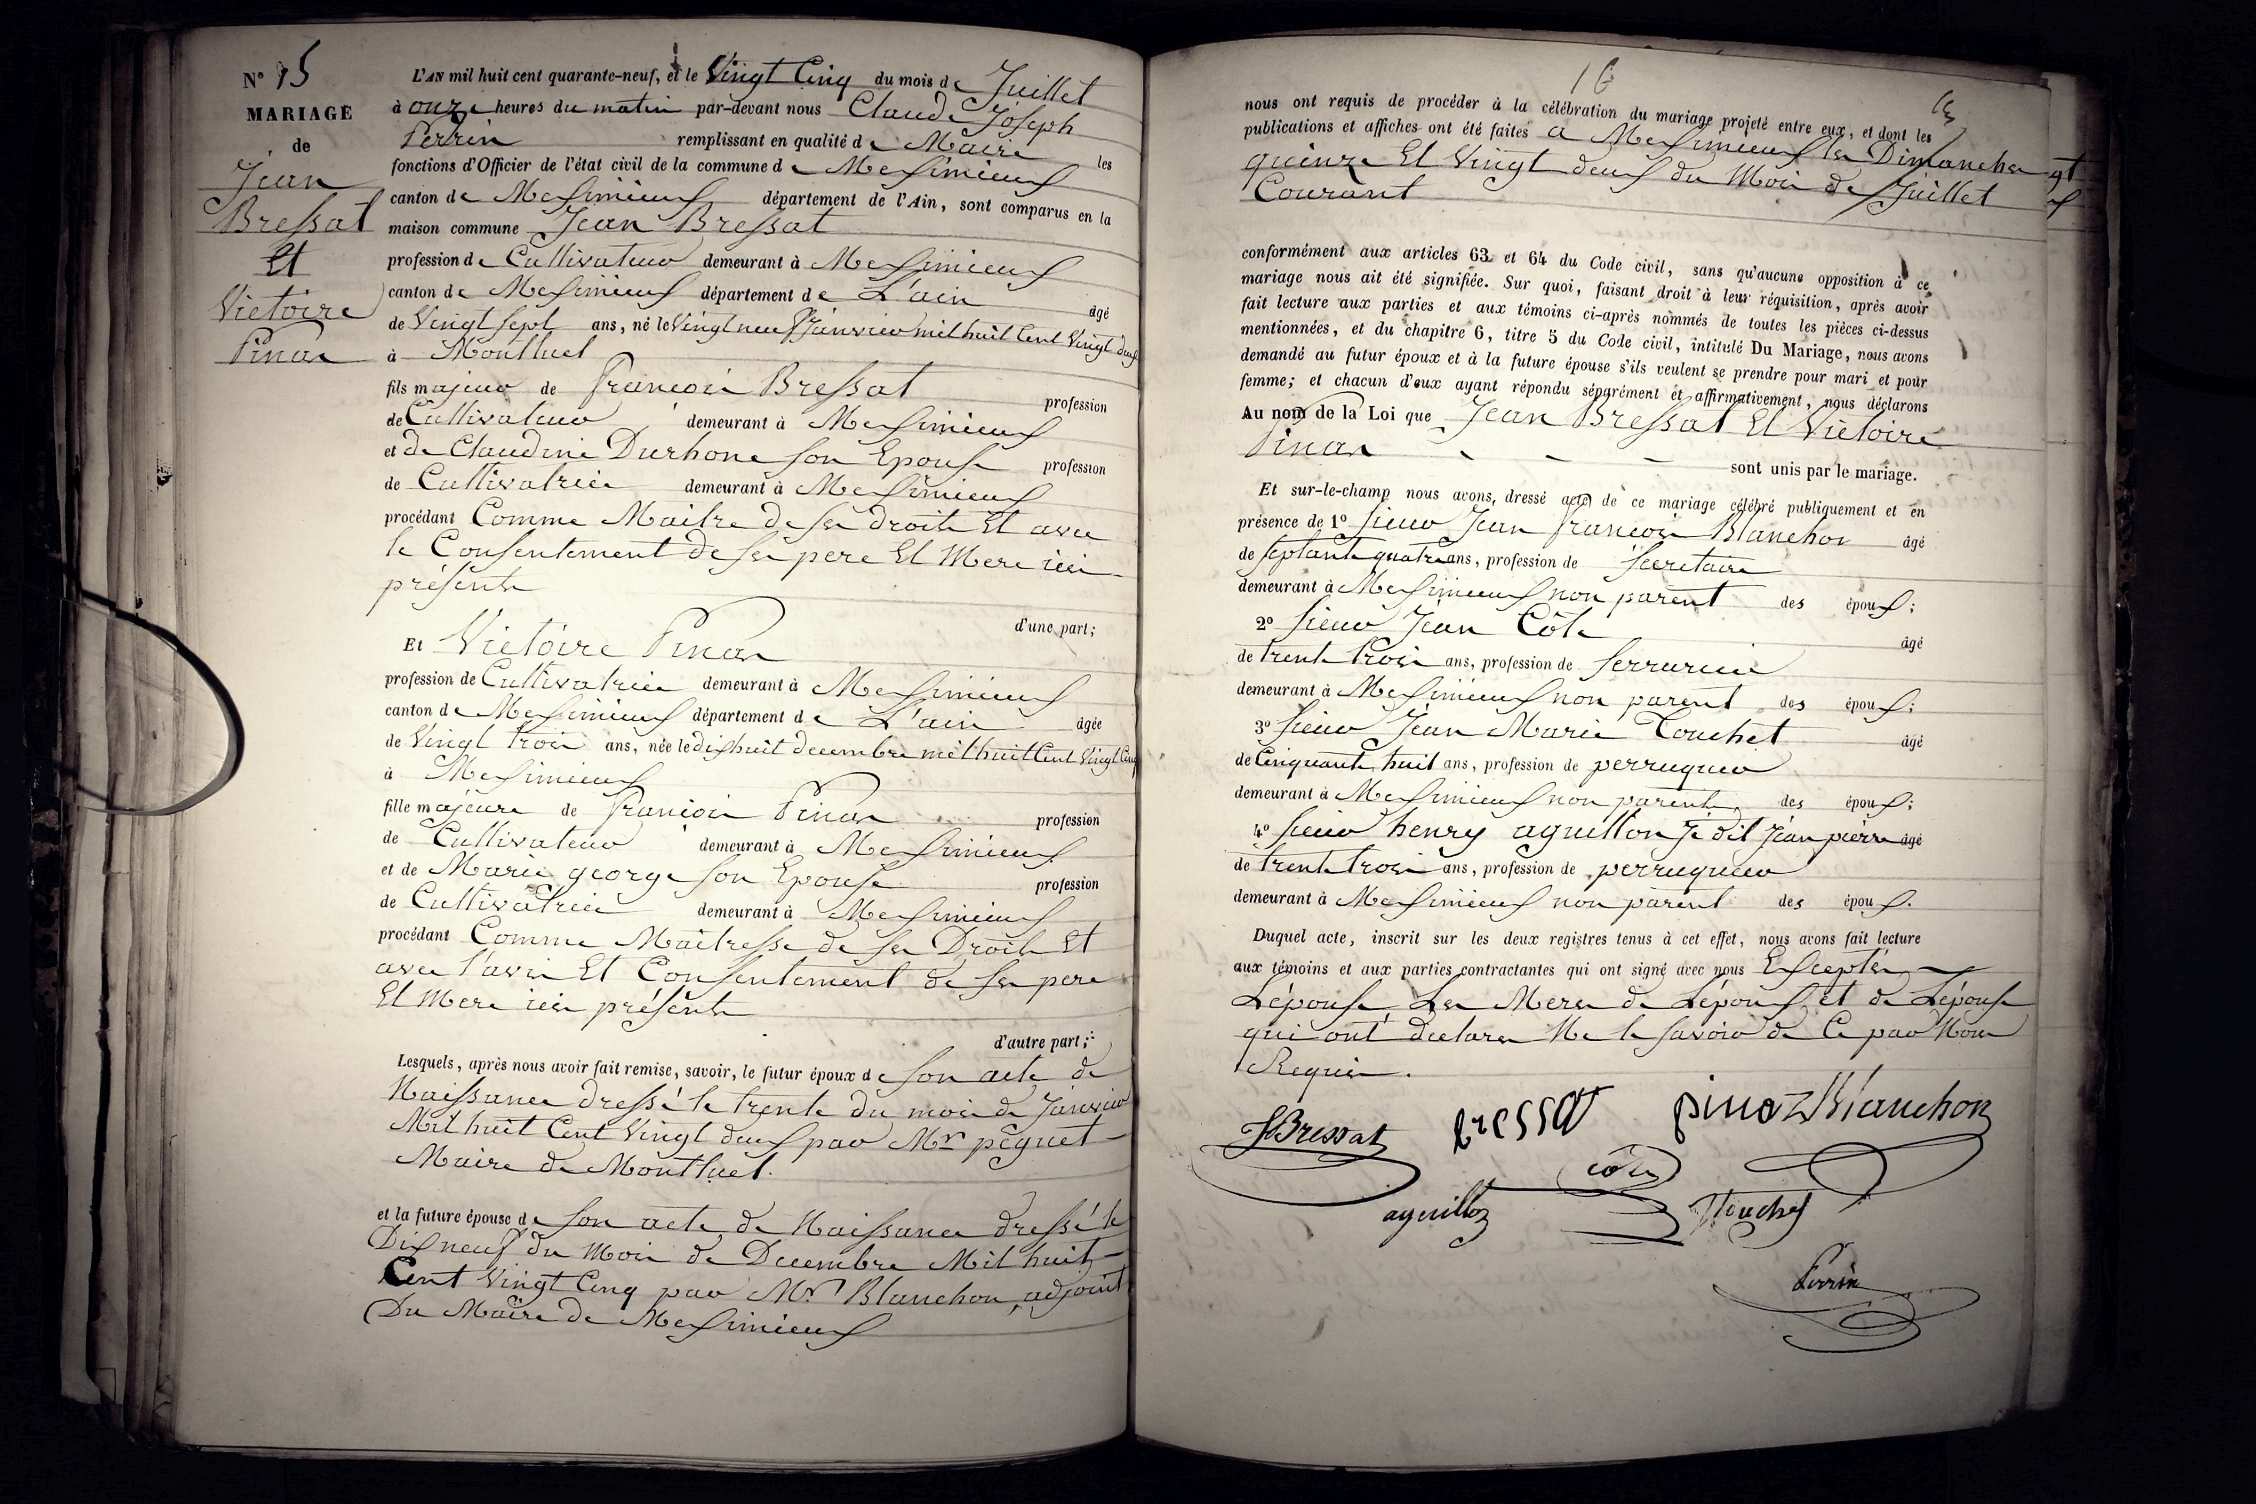 N° 15
MARIAGE
de
Jean
Bressat
Et
Victoire
Pinaz
L'AN mil huit cent quarante-neuf, et le Vingt Cinq du mois de Juillet
à onze heures du matin par-devant nous Claude Joseph
Perrin remplissant en qualité de Maire les
fonctions d'Officier de l'état civil de la commune de Meximieux
canton de Meximieux département de l'Ain, sont comparus en la
maison commune Jean Bressat
profession de Cultivateur demeurant à Meximieux
canton de Meximieux département de L'ain âgé
de Vingt Sept ans, né le Vingt neuf Janvier mil huit Cent Vingt deux
à Montluel
fils majeur de françois Bressat profession
de Cultivateur demeurant à Meximieux
et de Claudine Durhone son Epouse profession
de Cultivatrice demeurant à Meximieux
procédant Comme Maitre de ses droits Et avec
le Consentement de ses pere Et Mere ici
présents
d'une part;
Et Victoire Pinaz
profession de Cultivatrice demeurant à Meximieux
canton de Meximieux département de L'ain âgée
de Vingt trois ans, née le dixhuit decembre mil huit Cent Vingt Cinq
à Meximieux
fille majeure de françois Pinaz profession
de Cultivateur demeurant à Meximieux
et de Marie george son Epouse profession
de Cultivatrice demeurant à Meximieux
procédant Comme Maitresse de ses Droits Et
avec l'avis Et Consentement de ses pere
Et Mere ici présents
d'autre part;
Lesquels, après nous avoir fait remise, savoir, le futur époux de son acte de
Naissance dressé le trente du mois de Janvier
Mil huit Cent Vingt deux par Mr péguet
Maire de Montluel.
et la future épouse de son acte de Naissance dressé le
Dix neuf du Mois de Decembre Mil huit
Cent Vingt Cinq par Mr Blanchon adjoint
Du Maire de Meximieux
16
nous ont requis de procéder à la célébration du mariage projeté entre eux, et dont les
publications et affiches ont été faites a Meximieux les Dimanches
quinze Et Vingt deux du Mois de Juillet
Courant
conformément aux articles 63 et 64 du Code civil, sans qu'aucune opposition à ce
mariage nous ait été signifiée. Sur quoi, faisant droit à leur réquisition, après avoir
fait lecture aux parties et aux témoins ci-après nommés de toutes les pièces ci-dessus
mentionnées, et du chapitre 6, titre 5 du Code civil, intitulé Du Mariage, nous avons
demandé au futur époux et à la future épouse s'ils veulent se prendre pour mari et pour
femme; et chacun d'eux ayant répondu séparément et affirmativement, nous déclarons
Au nom de la Loi que Jean Bressat Et Victoire
Pinaz sont unis par le mariage.
Et sur-le-champ nous avons, dressé acte de ce mariage célébré publiquement et en
présence de 1° sieur Jean françois Blanchon âgé
de septante quatre ans, profession de Secretaire
demeurant à Meximieux non parent des époux;
2° sieur Jean Côte âgé
de trente trois ans, profession de serrurier
demeurant à Meximieux non parent des époux;
3° sieur Jean Marie Touchet âgé
de Cinquante huit ans, profession de perruquier
demeurant à Meximieux non parent des époux;
4° sieur henry aguillon dit Jean pierre âgé
de trente trois ans, profession de perruquier
demeurant à Meximieux non parent des époux.
Duquel acte, inscrit sur les deux registres tenus à cet effet, nous avons fait lecture
aux témoins et aux parties contractantes qui ont signé avec nous Exceptés
L'épouse, Les Meres de L'époux et de L'épouse
qui ont declaré Ne le savoir de Ce par Nous
Requis.
Bressat
bressat
pinaz
Blanchon
côte
aguillon
Touchet
Perrin